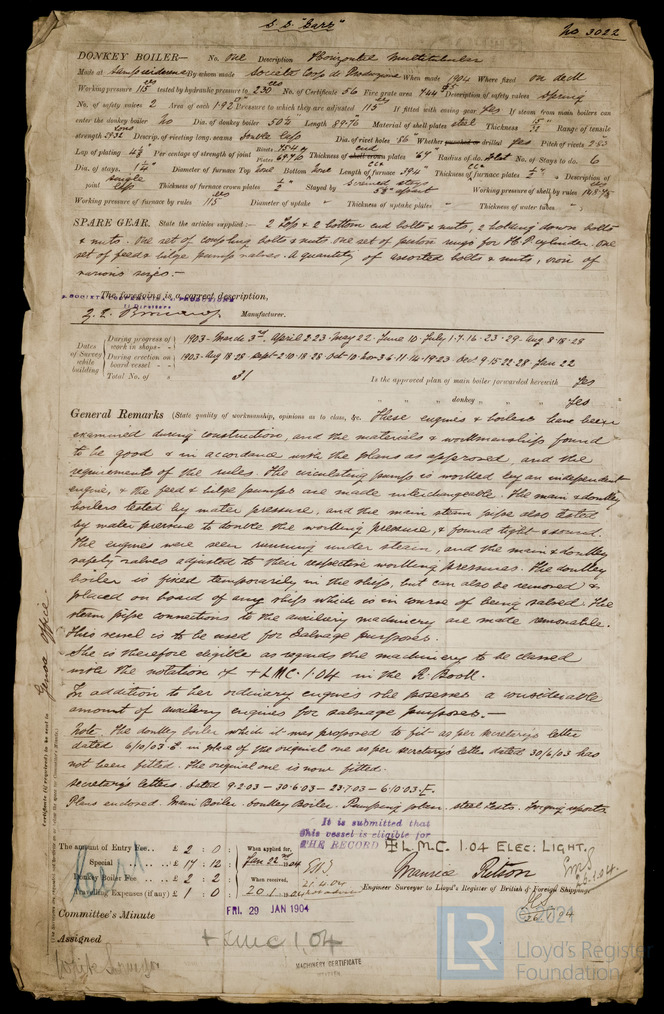 S.S. "Barr"
No 3022
DONKEY BOILER— No. One Description Horizontal Multitubular
Made at By whom made Societa Coop di Produzione When made 1904 Where fixed on deck
Working pressure 115 lbs tested by hydraulic pressure to 230 lbs No. of Certificate 56 Fire grate area 944 Description of safety valves Spring
No. of safety valves 2 Area of each 1.92 Pressure to which they are adjusted 115 lbs If fitted with easing gear yes If steam from main boilers can
enter the donkey boiler no Dia. of donkey boiler 50½ Length 89.76 Material of shell plates steel Thickness 15/32 Range of tensile
strength 29.32 tons Descrip. of riveting long. seams double laps Dia. of rivet holes Whether punched or drilled yes Pitch of rivets 2.83
Lap of plating Per centage of strength of joint Rivets 75.4 Plates 69.76 Thickness of shell crown plates end Radius of do. flat No. of Stays to do. 6
Dia. of stays. 1¼ Diameter of furnace Top Bottom Length of furnace Thickness of furnace plates ½ Description of
joint single laps Thickness of furnace crown plates ½ Stayed by screwed stays apart Working pressure of shell by rules
Working pressure of furnace by rules 115 lbs Diameter of uptake " Thickness of uptake plates " Thickness of water tubes "
SPARE GEAR. State the articles supplied:— 2 top & 2 bottom end bolts & nuts, 2 holding down bolts
& nuts. One set of coupling bolts & nuts one set of piston rings for H.P. cylinder. One
set of feed & bilge pump valves. A quantity of assorted bolts & nuts, iron of
various sizes.—
The foregoing is a correct description,
Manufacturer.
Dates of Survey while building
During progress of work in shops - - 1903 - March 3rd, April 2.23 May 22. June 10. July 1.7.16.23.29. Aug 8.18.28
During erection on board vessel - - 1903 - Aug 18.28. Sept 2.10.18.28 Oct 10. Nov 3.6.11.14.19.23 Dec 9.15.22.28 Jan 22
Total No. of visits 31
Is the approved plan of main boiler forwarded herewith Yes
" " " donkey " " " Yes
General Remarks (State quality of workmanship, opinions as to class, &c. These engines & boilers have been
examined during construction, and the materials & workmanship found
to be good & in accordance with the plans as approved, and the
requirements of the rules. The circulating pump is worked by an independent
engine, & the feed & bilge pumps are made interchangeable. The main & donkey
boilers tested by water pressure, and the main steam pipe also tested
by water pressure to double the working pressure, & found tight & sound.
The engines were seen running under steam, and the main & donkey
safety valves adjusted to their respective working pressures. The donkey
boiler is fixed temporarily in the ship, but can also be removed &
placed on board of any ship which is in course of being salved. The
steam pipe connections to the auxiliary machinery are made removable.
This vessel is to be used for Salvage purposes.
She is therefore eligible as regards the machinery to be classed
with the notation of + LMC. 1.04 in the R. Book.
In addition to her ordinary engines she possesses a considerable
amount of auxiliary engines for salvage purposes.—
Note. The donkey boiler which it was proposed to fit as per secretary's letter
dated 6/10/03.E in place of the original one as per secretary's letter dated 30/6/03 has
not been fitted. The original one is now fitted.
Secretary's letters. dated 9.2.03 — 30.6.03 — 23.7.03 — 6.10.03.E.
Plans enclosed. Main Boiler. Donkey Boiler. Pumping plan. Steel Tests. Forging reports
Genoa Office.
It is submitted that
this vessel is eligible for
THE RECORD + L.M.C. 1.04 ELEC: LIGHT.
The amount of Entry Fee.. £ 2 : 0 : When applied for,
Special .. £ 17 : 12 : Jan 22nd 1904
Donkey Boiler Fee .. £ 2 : 2 : When received,
Travelling Expenses (if any) £ 1 : 0
Engineer Surveyor to Lloyd's Register of British & Foreign Shipping
Committee's Minute FRI. 29 JAN 1904
Assigned + LMC 1.04
MACHINERY CERTIFICATE
WRITTEN
LR
© 2024
Lloyd's Register
Foundation